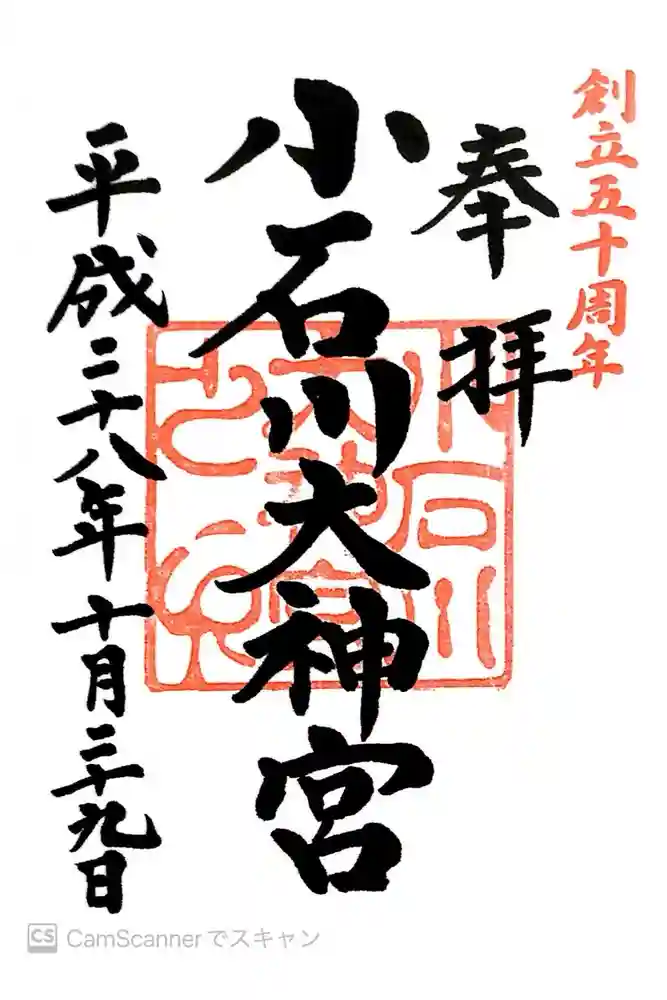 創立五十周年
奉拝
小石川大神宮
平成二十八年十月二十九日
小石川
大神宮
CS CamScanner でスキャン